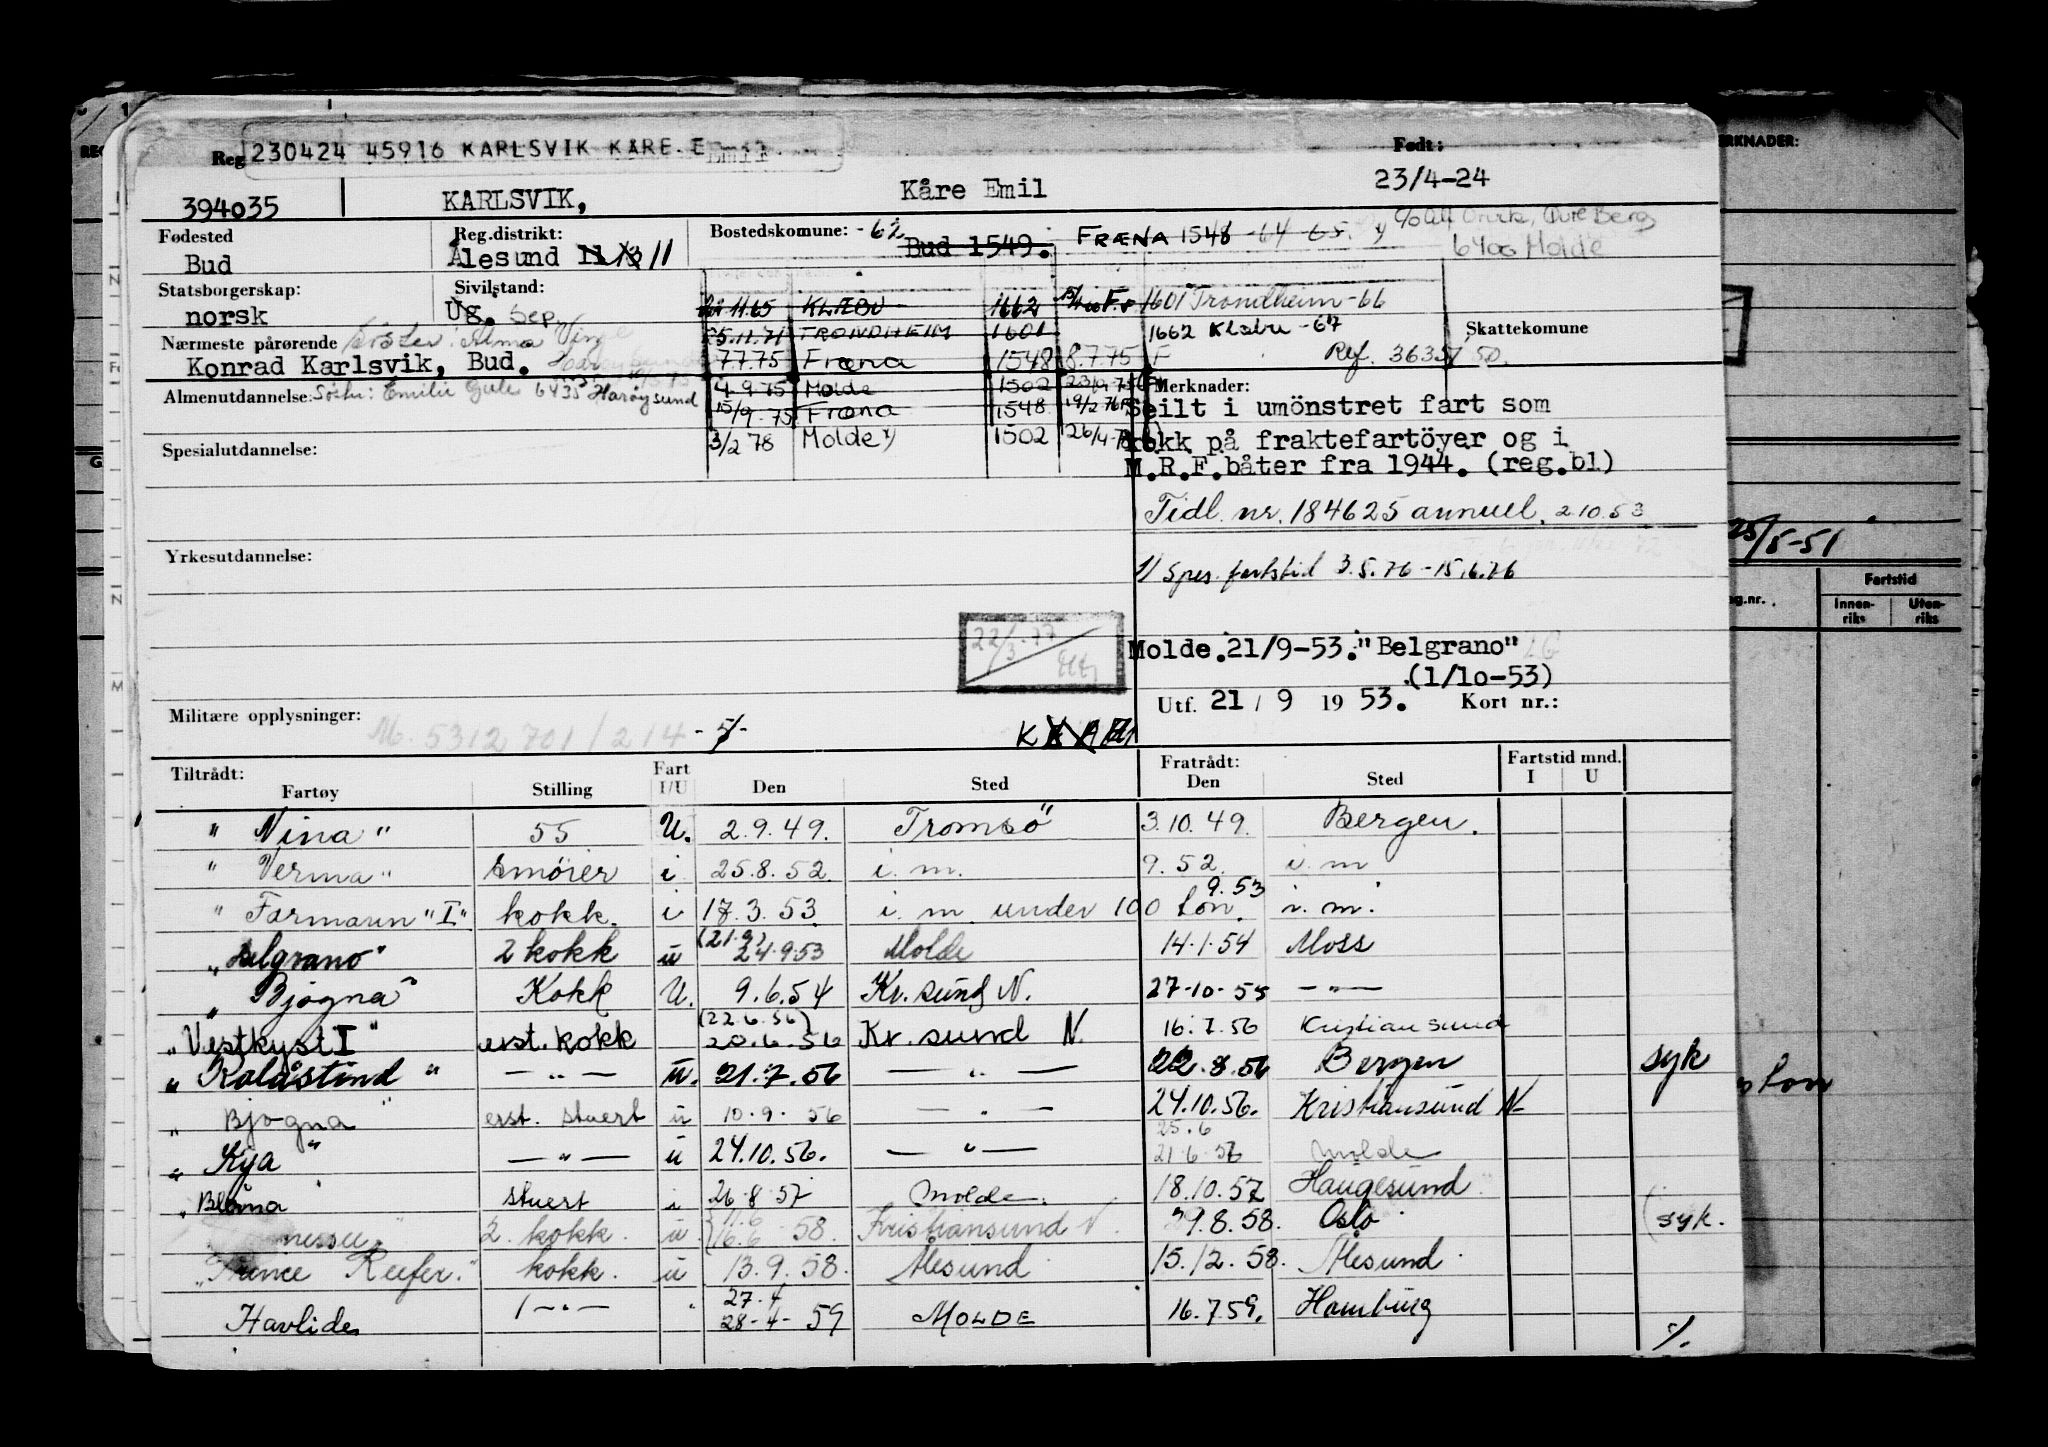 Reg 230424 45916 KARLSVIK KÅRE E Emil
Født:
394035 KARLSVIK, Kåre Emil 23/4-24
Fødested Reg.distrikt: Bostedskommune: -62
Bud Ålesund 11 Bud 1549. FRÆNA 1548 -64 -65.
6400 Molde
Statsborgerskap: Sivilstand:
norsk Ug. Sep.
11.65 KLÆBU 1662 1601 Trondheim -66
5.11.71 TRONDHEIM 1601 1662 Klæbu -67
Skattekomune
Nærmeste pårørende Søster: Alma
Konrad Karlsvik, Bud.
7.7.75 Fræna 1548 8.7.75 F Ref. 36351/50.
Almenutdannelse: Søster: Emilie 6435 Harøysund
4.9.75 Molde 1502
15/9.75 Fræna 1548 19/2.76
3/2 78 Molde 1502 26/4.78
Merknader:
Seilt i umönstret fart som
kokk på fraktefartöyer og i
M.R.F.båter fra 1944. (reg.bl)
Spesialutdannelse:
Tidl. nr. 184625 annuel. 2.10.53
Yrkesutdannelse:
1) Spes. fartstid 3.5.76 - 15.6.76
22/3.77
Molde.21/9-53."Belgrano"
(1/10-53)
Utf. 21 / 9 19 53. Kort nr.:
Militære opplysninger: M. 5312701/214 - 5/-
Tiltrådt: Fratrådt: Fartstid mnd.
Fartøy Stilling Fart I/U Den Sted Den Sted I U
"Nina" 55 U. 2.9.49. Tromsö 3.10.49. Bergen.
"Verma" smörer i 25.8.52. i.m. 9.52. i.m
"Farmann "I" kokk. i 17.3.53 i.m. under 100 ton. 9.53 i.m.
"Belgrano" 2 kokk u (21.9) 24.9.53 Molde 14.1.54 Moss
"Bjøgna" Kokk U. 9.6.54 Kr.sund N. 27-10-55 — " —
"Vestkyst I" erst. kokk (22.6.56) 20.6.56 Kr.sund N. 16.7.56 Kristiansund
"Kolåstind" — " — u. 21.7.56 — " — 22.8.56 Bergen syk
"Bjøgna" erst. stuert u 10.9.56 — " — 24.10.56. Kristiansund N-
"Kya" — " — u 24.10.56. — " — 25.6 21.6.57 Molde
"Blåna" stuert i 26.8.57 Molde. 18.10.57 Haugesund
2. kokk. u. 11.6 16.6 58. Kristiansund N. 29.8.58. Oslo (syk.
Reefer." kokk. u 13.9.58. Ålesund 15.12.58. Ålesund
Havlide 1 — " — " 27.4 28-4-59 MOLDE 16.7.59. Hamburg
%.
ERKNADER:
25/5-51
Fartstid
Innen-riks Uten-riks
tonn